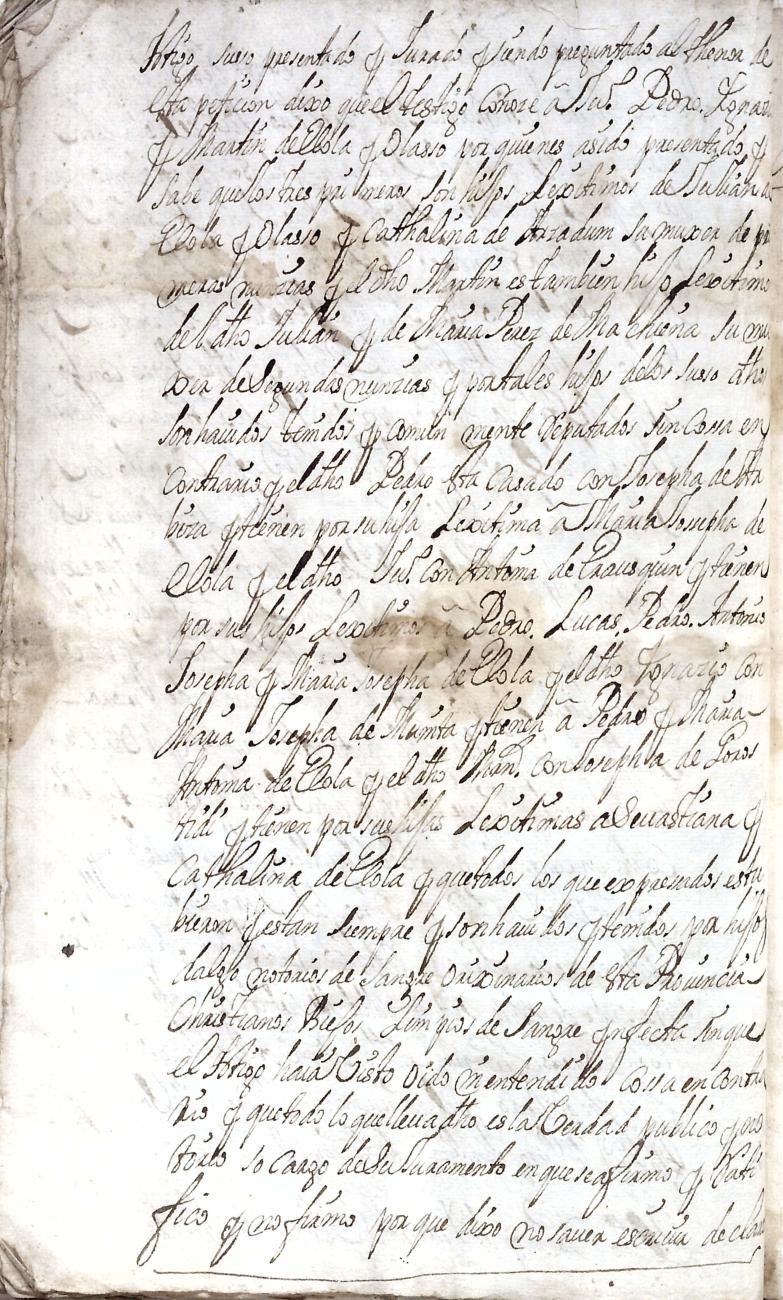 testigo suso presentado y Jurado y siendo preguntado al thenor de
esta peticion dixo que el testigo conoze â Juº Pedro, Ygnaz
y Martin de Elola y Olasso por quienes asido presentado y
sabe que los tres primeros son hijos Lexitimos de Julian de
Elola y Olasso y Cathalina de Arzadum su muxer de pri
meras nuncias y el dho Martin es tambien hijo Lexitimo
del dho Julian y de Maria Perez de Machiona su mu
xer de segundas nuncias y por tales hijos delos suso dhos
son hauidos tenidos y comun mente Reputados sin cossa en
contrario y el dho Pedro esta casado con Josepha de Ar
biza y tienen por su hija Lexitima â Maria Josepha de
Elola y el dho Juº con Antonia de Erausquin y tienen
por sus hijos Lexitimos â Pedro, Lucas, Pedro, Antonio
Josepha y Maria Josepha de Elola y el dho Ygnazio con
Maria Josepha de Munita y tienen â Pedro y Maria
Antonia de Elola y el dho Mrn con Josepha de Goros
tidi y tienen por sus hijas Lexitimas a Seuastiana y
Cathalina de Elola y que todos los que expresados estu
bieron y estan siempre y son hauidos y tenidos por hijos
dalgo notorios de sangre orixinarios de esta Prouincia
Christianos Biejos Limpios de sangre ynfecta sin que
el testigo haia Visto oido ni entendido cossa en contra
rio y que todo lo que lleua dho es la Verdad publico y no
torio so cargo de su Juramento en que se afirmo y Rati
fico y no firmo por que dixo no sauer escriuir de clar